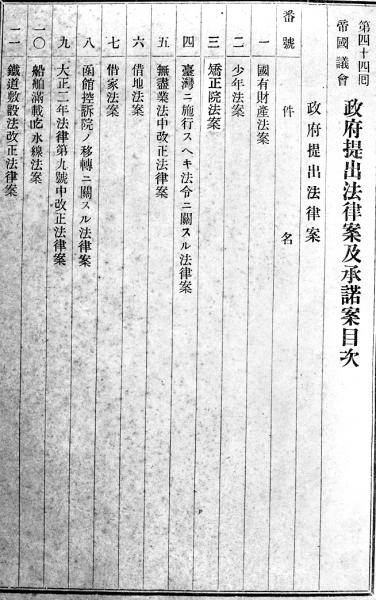 第四十四回
帝國議會
政府提出法律案及承諾案目次
政府提出法律案
番號 件名
一 國有財產法案
二 少年法案
三 矯正院法案
四 臺灣ニ施行スヘキ法令ニ關スル法律案
五 無盡業法中改正法律案
六 借地法案
七 借家法案
八 函館控訴院ノ移轉ニ關スル法律案
九 大正二年法律第九號中改正法律案
一〇 船舶滿載吃水線法案
一一 鐵道敷設法改正法律案